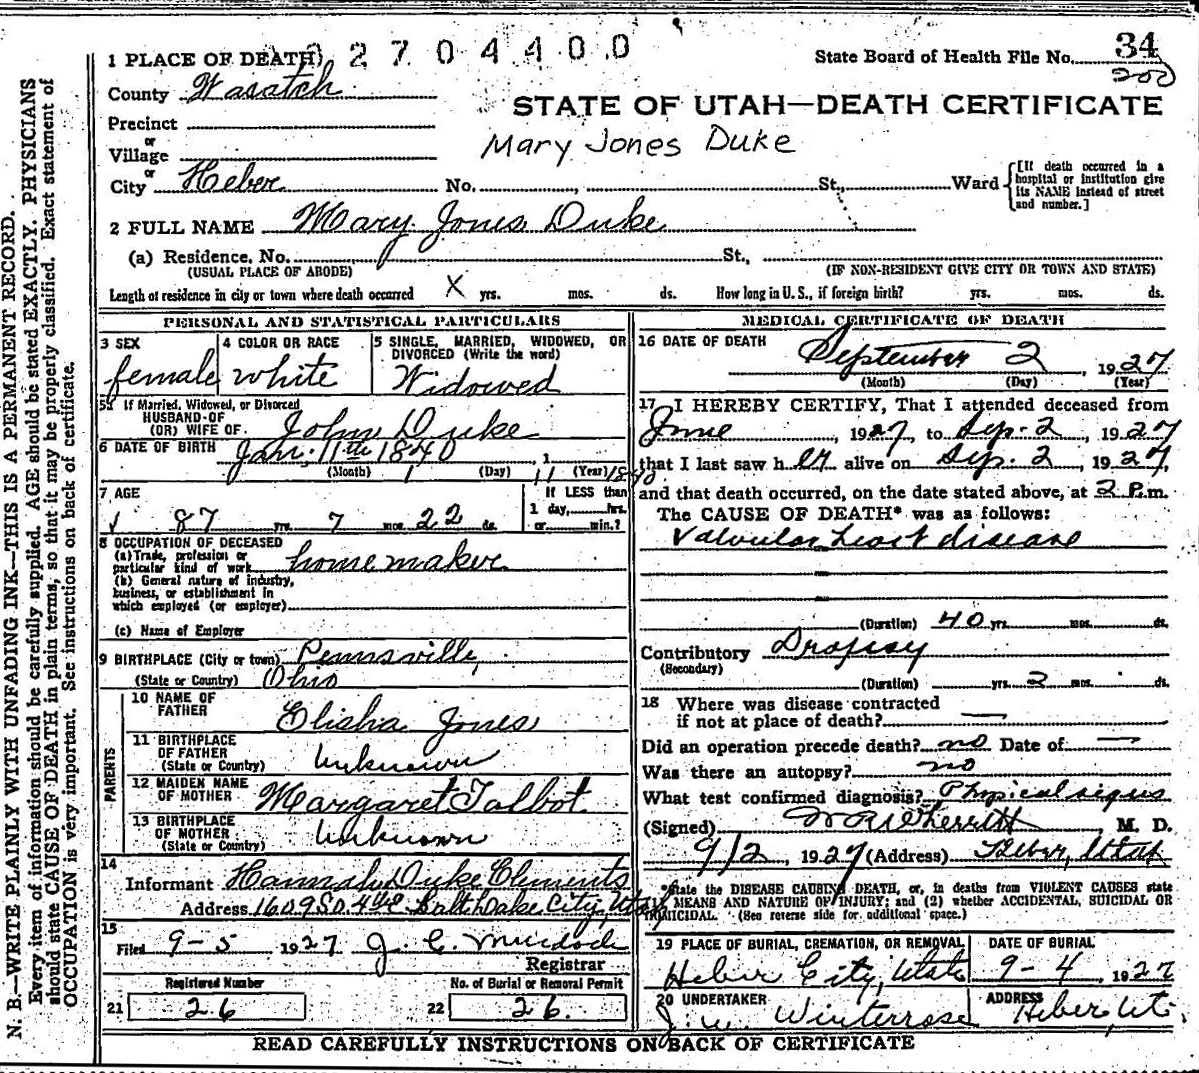 N. B.—WRITE PLAINLY WITH UNFADING INK—THIS IS A PERMANENT RECORD.
Every item of information should be carefully supplied. AGE should be stated EXACTLY. PHYSICIANS
should state CAUSE OF DEATH in plain terms, so that it may be properly classified. Exact statement of
OCCUPATION is very important. See instructions on back of certificate.
2704400
State Board of Health File No. 34
200
1 PLACE OF DEATH
County Wasatch
STATE OF UTAH—DEATH CERTIFICATE
Precinct
or
Village
Mary Jones Duke
or
City Heber No. , St., Ward
[If death occurred in a
hospital or institution give
its NAME instead of street
and number.]
2 FULL NAME Mary Jones Duke
(a) Residence. No. St.,
(USUAL PLACE OF ABODE) (IF NON-RESIDENT GIVE CITY OR TOWN AND STATE)
Length of residence in city or town where death occurred X yrs. mos. ds. How long in U. S., if foreign birth? yrs. mos. ds.
PERSONAL AND STATISTICAL PARTICULARS
3 SEX
female
4 COLOR OR RACE
white
5 SINGLE, MARRIED, WIDOWED, OR
DIVORCED (Write the word)
Widowed
5a If Married, Widowed, or Divorced
HUSBAND OF
(OR) WIFE OF. John Duke
6 DATE OF BIRTH Jan. 11th 1840
(Month) 1 (Day) 11 (Year) 1840
7 AGE
87 yrs. 7 mos. 22 ds.
If LESS than
1 day, hrs.
or min.?
8 OCCUPATION OF DECEASED
(a) Trade, profession or
particular kind of work home maker
(b) General nature of industry,
business, or establishment in
which employed (or employer)
(c) Name of Employer
9 BIRTHPLACE (City or town)
(State or Country) Ohio
PARENTS
10 NAME OF
FATHER Elisha Jones
11 BIRTHPLACE
OF FATHER
(State or Country) Unknown
12 MAIDEN NAME
OF MOTHER Margaret Talbot
13 BIRTHPLACE
OF MOTHER
(State or Country) Unknown
14
Informant Hannah Duke Clements
Address 1609 So. 4th E Salt Lake City, Utah
15
Filed 9-5 1927 J. C. Murdock
Registrar
Registered Number
21 26
No. of Burial or Removal Permit
22 26.
MEDICAL CERTIFICATE OF DEATH
16 DATE OF DEATH
September 2, 1927
(Month) (Day) (Year)
17 I HEREBY CERTIFY, That I attended deceased from
June, 1927, to Sep. 2, 1927
that I last saw her alive on Sep. 2, 1927,
and that death occurred, on the date stated above, at 2 P.m.
The CAUSE OF DEATH* was as follows:
Valvular heart disease
(Duration) 40 yrs. mos. ds.
Contributory Dropsy
(Secondary)
(Duration) yrs. 2 mos. ds.
18 Where was disease contracted
if not at place of death? —
Did an operation precede death? no Date of —
Was there an autopsy? no
What test confirmed diagnosis? Physical signs
(Signed) , M. D.
9/2, 1927 (Address) Heber, Utah
*State the DISEASE CAUSING DEATH, or, in deaths from VIOLENT CAUSES state
MEANS AND NATURE OF INJURY; and (2) whether ACCIDENTAL, SUICIDAL OR
HOMICIDAL. (See reverse side for additional space.)
19 PLACE OF BURIAL, CREMATION, OR REMOVAL
Heber City, Utah
DATE OF BURIAL
9-4, 1927
20 UNDERTAKER
J. W. Winterrose
ADDRESS
Heber, Ut.
READ CAREFULLY INSTRUCTIONS ON BACK OF CERTIFICATE